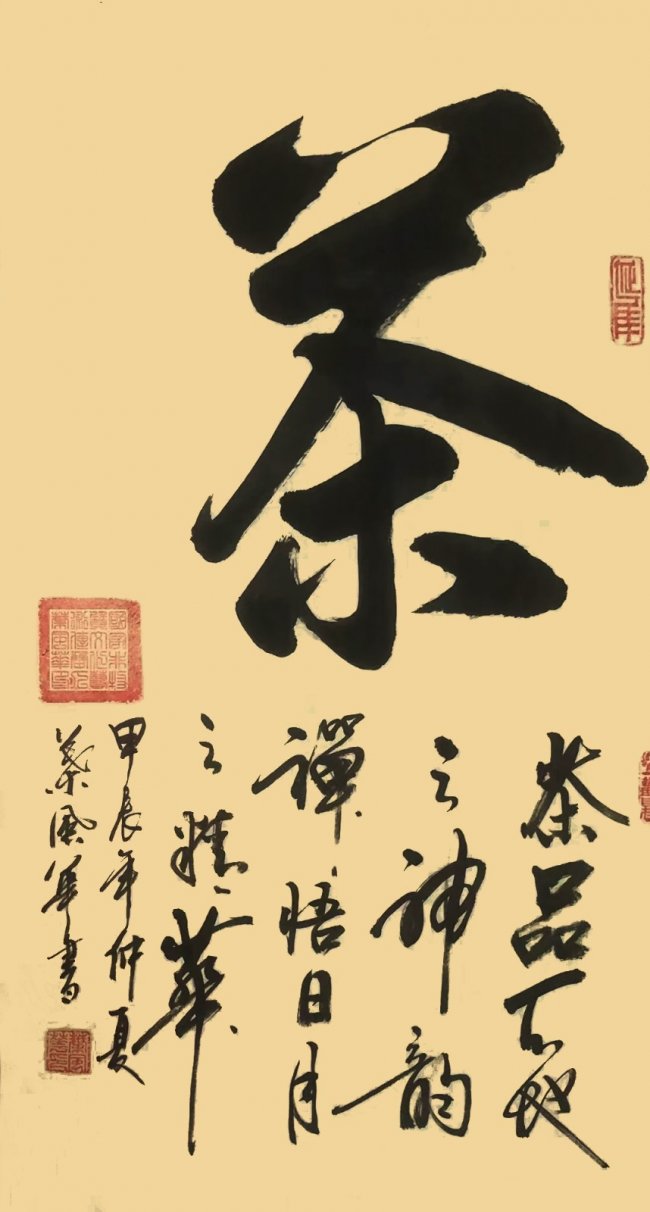 茶
茶品天地
之神韵
禪悟日月
之精華
甲辰年仲夏
葉風華書